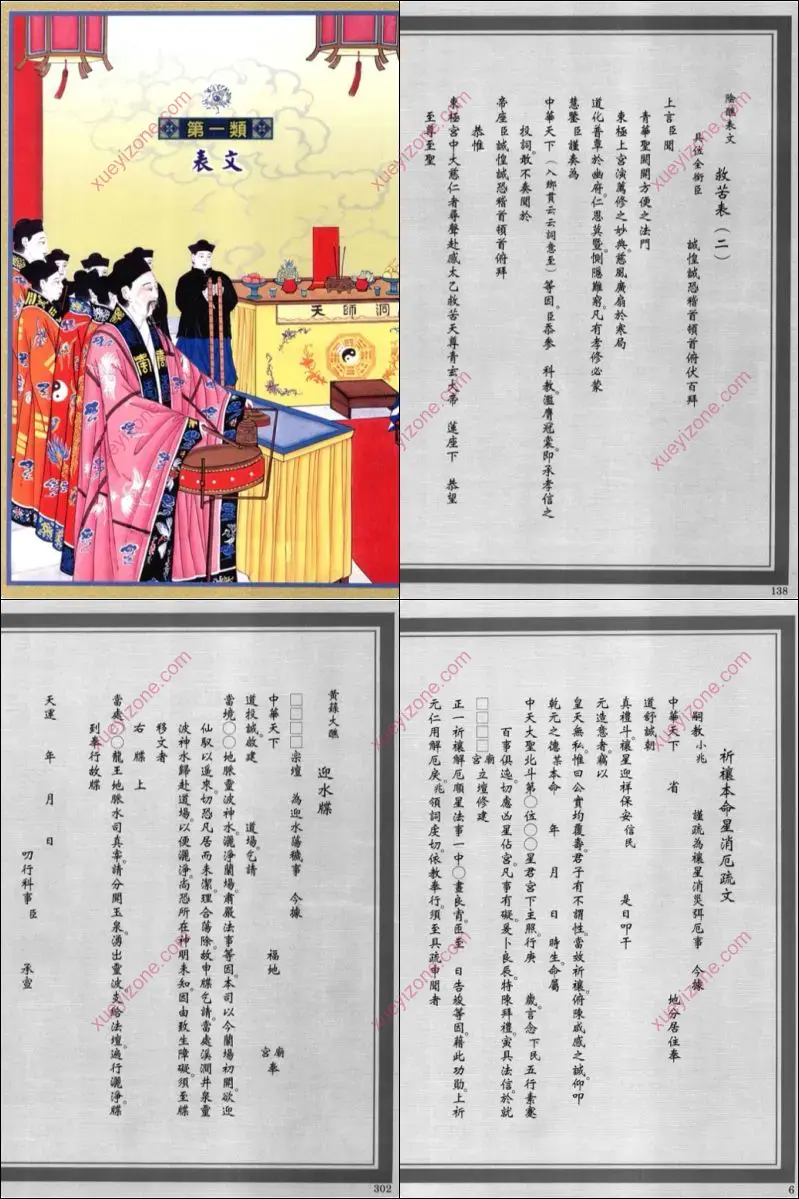 第一類
表文
天師洞
xueyizone.com
xueyizone.com
xueyizone.com
xueyizone.com
陰醮表文
救苦表（二）
具位全銜臣　誠惶誠恐稽首頓首俯伏百拜
上言臣聞
青華聖闕開方便之法門
東極上宮演萬修之妙典慈風廣扇於寒局
道化普覃於幽府。仁恩莫暨。惻隱難窮。凡有孝修必蒙
慧鑒臣謹奏為
中華天下（入鄉貫云云詞意至）等因。臣忝參　科教。濫膺冠裳。即承孝信之
投詞。敢不奏聞於
帝座臣誠惶誠恐稽首頓首俯拜
恭惟
東極宮中大慈仁者尋聲赴感太乙救苦天尊青玄大帝　蓮座下　恭望
至尊至聖
138
xueyizone.com
xueyizone.com
xueyizone.com
xueyizone.com
黃籙大醮
迎水牒
□□□□宗壇　為迎水蕩穢事　今據
中華天下　福地　宮廟奉
道投誠。啟建　道場。乞請
當境〇〇地脈靈波神水。灑淨蘭場。肅嚴法事等因。本司以今蘭場初開。欲迎
仙馭以遙來。切恐凡居而未潔。理合蕩除。故申牒乞請。當處溪澗井泉靈
波神水歸赴道場。以便灑淨。尚恐所在神明未知。因由致生障礙。須至牒
移文者
右　牒　上
當處〇〇龍王地脈水司真宰。請分開玉泉。湧出靈波。支給法壇。遍行灑淨。牒
到奉行故牒
天運　年　月　日
叨行科事臣　承宣
302
xueyizone.com
xueyizone.com
xueyizone.com
xueyizone.com
祈禳本命星消厄疏文
嗣教小兆　謹疏為禳星消災弭厄事　今據
中華天下　省　地分居住奉
道舒誠朝
真禮斗。禳星迎祥保安信民　是日叩干
元造意者。竊以
皇天無私。惟曰公實均覆壽。君子有不謂性。當放祈禳。俯陳咸感之誠。仰叩
乾元之德。某本命　年　月　日　時生。命屬
中天大聖北斗第〇位〇〇星君宮下主照。行庚　歲。言念下民五行素蹇
百事俱違。切慮凶星佔宮。凡事有礙。爰卜良辰。特陳拜禮。寅具法信。於就
□□□□宮廟立壇修建
正一祈禳解厄順星法事一中〇晝良宵。匝至　日告竣等因。藉此功勛。上祈
元仁用解厄戾。兆領詞虔切。依教奉行。須至具疏申聞者
6
xueyizone.com
xueyizone.com
xueyizone.com
xueyizone.com